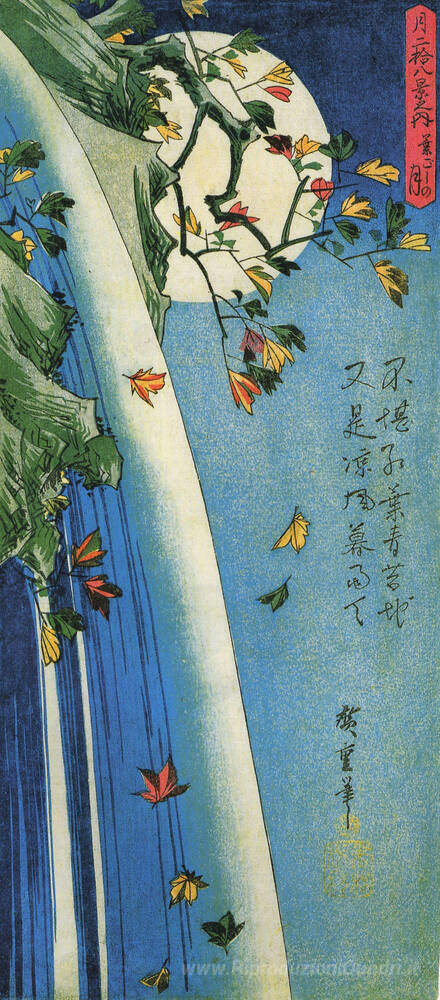 月二拾八景之内
葉ごしの
月
不堪紅葉青苔地
又是凉風暮雨天
廣重筆
www.RiproduzioniQuadri.it